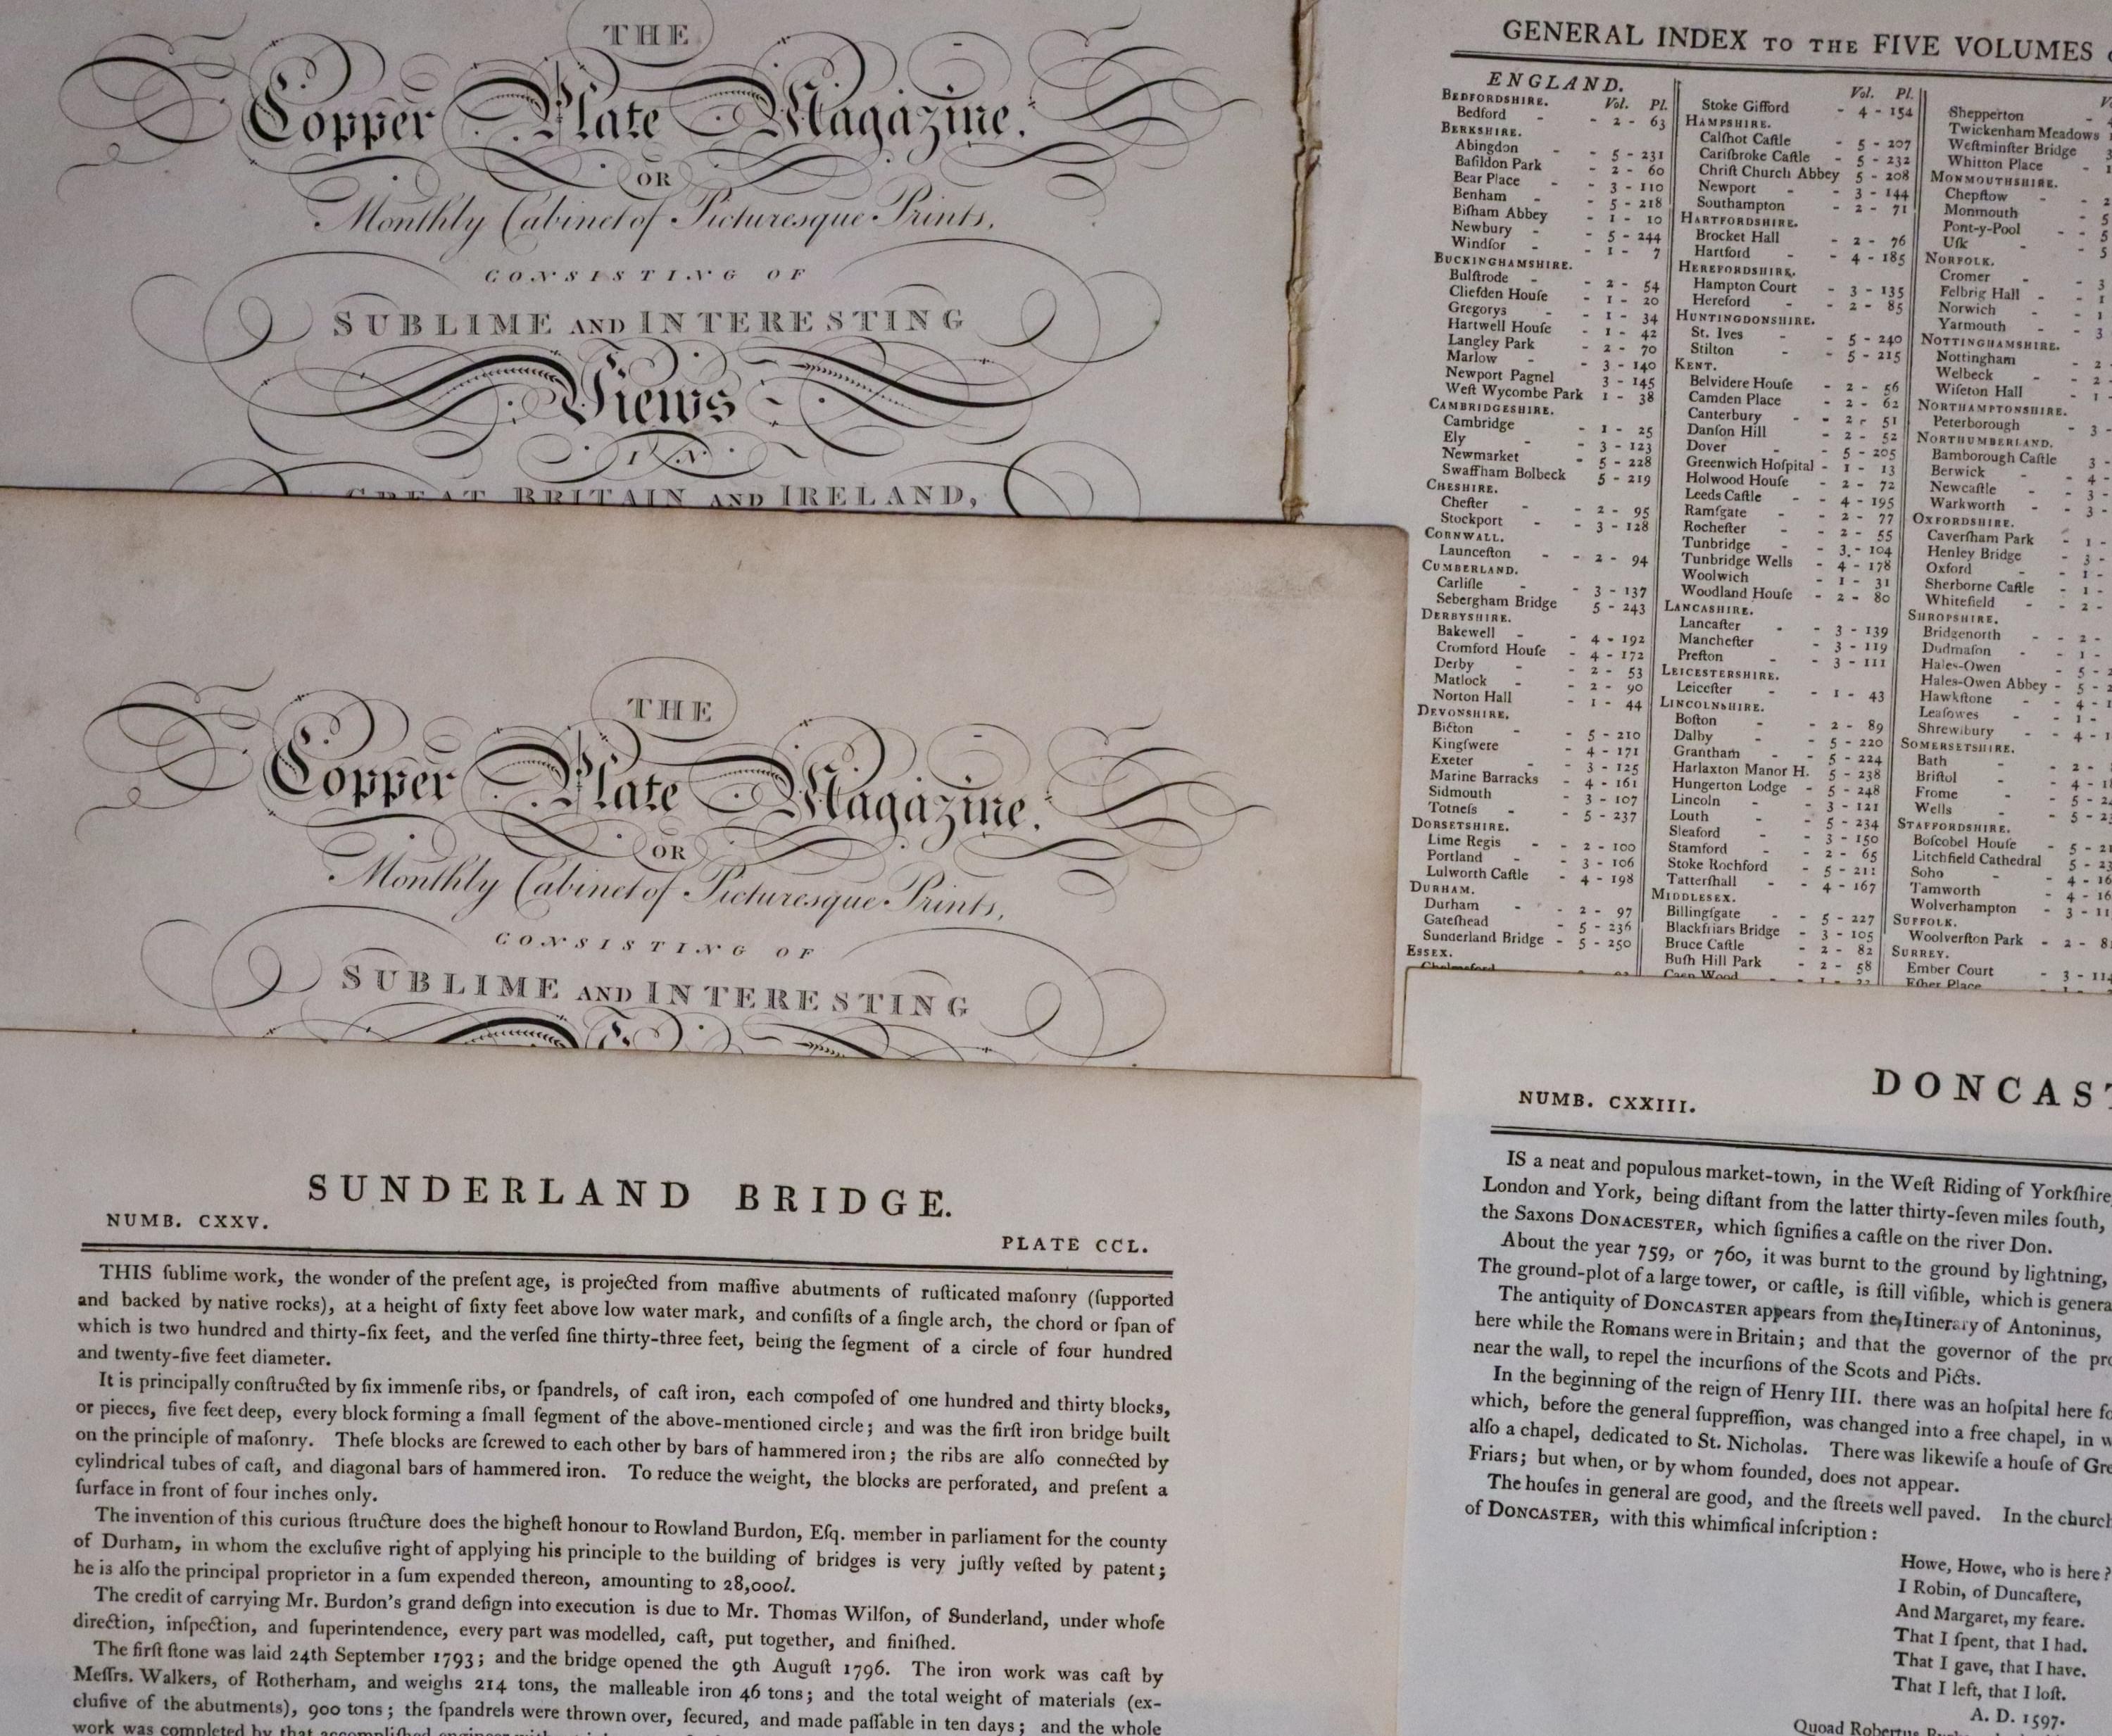 THE
Copper Plate Magazine,
OR
Monthly Cabinet of Picturesque Prints,
CONSISTING OF
SUBLIME AND INTERESTING
Views
IN
GREAT BRITAIN AND IRELAND,
THE
Copper Plate Magazine,
OR
Monthly Cabinet of Picturesque Prints,
CONSISTING OF
SUBLIME AND INTERESTING
SUNDERLAND BRIDGE.
NUMB. CXXV.
PLATE CCL.
THIS ſublime work, the wonder of the preſent age, is projected from maſſive abutments of ruſticated maſonry (ſupported
and backed by native rocks), at a height of ſixty feet above low water mark, and conſiſts of a ſingle arch, the chord or ſpan of
which is two hundred and thirty-ſix feet, and the verſed ſine thirty-three feet, being the ſegment of a circle of four hundred
and twenty-five feet diameter.
It is principally conſtructed by ſix immenſe ribs, or ſpandrels, of caſt iron, each compoſed of one hundred and thirty blocks,
or pieces, five feet deep, every block forming a ſmall ſegment of the above-mentioned circle; and was the firſt iron bridge built
on the principle of maſonry. Theſe blocks are ſcrewed to each other by bars of hammered iron; the ribs are alſo connected by
cylindrical tubes of caſt, and diagonal bars of hammered iron. To reduce the weight, the blocks are perforated, and preſent a
ſurface in front of four inches only.
The invention of this curious ſtructure does the higheſt honour to Rowland Burdon, Eſq. member in parliament for the county
of Durham, in whom the excluſive right of applying his principle to the building of bridges is very juſtly veſted by patent;
he is alſo the principal proprietor in a ſum expended thereon, amounting to 28,000l.
The credit of carrying Mr. Burdon's grand deſign into execution is due to Mr. Thomas Wilſon, of Sunderland, under whoſe
direction, inſpection, and ſuperintendence, every part was modelled, caſt, put together, and finiſhed.
The firſt ſtone was laid 24th September 1793; and the bridge opened the 9th Auguſt 1796. The iron work was caſt by
Meſſrs. Walkers, of Rotherham, and weighs 214 tons, the malleable iron 46 tons; and the total weight of materials (ex-
cluſive of the abutments), 900 tons; the ſpandrels were thrown over, ſecured, and made paſſable in ten days; and the whole
work was completed by that accompliſhed
GENERAL INDEX TO THE FIVE VOLUMES
ENGLAND.
BEDFORDSHIRE. Vol. Pl.
Bedford - - 2 - 63
BERKSHIRE.
Abingdon - - 5 - 231
Baſildon Park - 2 - 60
Bear Place - - 3 - 110
Benham - - 5 - 218
Biſham Abbey - 1 - 10
Newbury - - 5 - 244
Windſor - - 1 - 7
BUCKINGHAMSHIRE.
Bulſtrode - - 2 - 54
Cliefden Houſe - 1 - 20
Gregorys - - 1 - 34
Hartwell Houſe - 1 - 42
Langley Park - 2 - 70
Marlow - - 3 - 140
Newport Pagnel 3 - 145
Weſt Wycombe Park 1 - 38
CAMBRIDGESHIRE.
Cambridge - 1 - 25
Ely - - 3 - 123
Newmarket - 5 - 228
Swaffham Bolbeck 5 - 219
CHESHIRE.
Cheſter - - 2 - 95
Stockport - - 3 - 128
CORNWALL.
Launceſton - - 2 - 94
CUMBERLAND.
Carliſle - - 3 - 137
Sebergham Bridge 5 - 243
DERBYSHIRE.
Bakewell - - 4 - 192
Cromford Houſe - 4 - 172
Derby - - 2 - 53
Matlock - - 2 - 90
Norton Hall - 1 - 44
DEVONSHIRE.
Bicton - - 5 - 210
Kingſwere - 4 - 171
Exeter - - 3 - 125
Marine Barracks - 4 - 161
Sidmouth - 3 - 107
Totneſs - - 5 - 237
DORSETSHIRE.
Lime Regis - - 2 - 100
Portland - - 3 - 106
Lulworth Caſtle - 4 - 198
DURHAM.
Durham - - 2 - 97
Gateſhead - 5 - 236
Sunderland Bridge - 5 - 250
ESSEX.
Chelmsford
Vol. Pl.
Stoke Gifford - 4 - 154
HAMPSHIRE.
Calſhot Caſtle - 5 - 207
Cariſbroke Caſtle - 5 - 232
Chriſt Church Abbey 5 - 208
Newport - - 3 - 144
Southampton - 2 - 71
HARTFORDSHIRE.
Brocket Hall - 2 - 76
Hartford - - 4 - 185
HEREFORDSHIRE.
Hampton Court - 3 - 135
Hereford - - 2 - 85
HUNTINGDONSHIRE.
St. Ives - - 5 - 240
Stilton - - 5 - 215
KENT.
Belvidere Houſe - 2 - 56
Camden Place - 2 - 62
Canterbury - - 2 - 51
Danſon Hill - 2 - 52
Dover - - 5 - 205
Greenwich Hoſpital - 1 - 13
Holwood Houſe - 2 - 72
Leeds Caſtle - - 4 - 195
Ramſgate - 2 - 77
Rocheſter - 2 - 55
Tunbridge - 3 - 104
Tunbridge Wells - 4 - 178
Woolwich - 1 - 31
Woodland Houſe - 2 - 80
LANCASHIRE.
Lancaſter - - 3 - 139
Mancheſter - 3 - 119
Preſton - - 3 - 111
LEICESTERSHIRE.
Leiceſter - - 1 - 43
LINCOLNSHIRE.
Boſton - - 2 - 89
Dalby - - 5 - 220
Grantham - - 5 - 224
Harlaxton Manor H. 5 - 238
Hungerton Lodge - 5 - 248
Lincoln - - 3 - 121
Louth - - 5 - 234
Sleaford - - 3 - 150
Stamford - - 2 - 65
Stoke Rochford - 5 - 211
Tatterſhall - - 4 - 167
MIDDLESEX.
Billingſgate - - 5 - 227
Blackfriars Bridge - 3 - 105
Bruce Caſtle - 2 - 82
Buſh Hill Park - 2 - 58
Caen Wood
Shepperton
Twickenham Meadows
Weſtminſter Bridge
Whitton Place
MONMOUTHSHIRE.
Chepſtow - 2
Monmouth - 5
Pont-y-Pool - - 5
Uſk - 5
NORFOLK.
Cromer - 3
Felbrig Hall - 1
Norwich - 1
Yarmouth - 3
NOTTINGHAMSHIRE.
Nottingham - 2
Welbeck - 2
Wiſeton Hall - 1
NORTHAMPTONSHIRE.
Peterborough - 3
NORTHUMBERLAND.
Bamborough Caſtle 3
Berwick - 4
Newcaſtle - 3
Warkworth - 3
OXFORDSHIRE.
Caverſham Park - 1
Henley Bridge - 3
Oxford - 1
Sherborne Caſtle - 1
Whitefield - 2
SHROPSHIRE.
Bridgenorth - - 2
Dudmaſon - 1
Hales-Owen - 5
Hales-Owen Abbey - 5
Hawkſtone - 4
Leaſowes - 1
Shrewſbury - 4
SOMERSETSHIRE.
Bath - - 2
Briſtol - - 4
Frome - - 5
Wells - - 5
STAFFORDSHIRE.
Boſcobel Houſe - 5
Litchfield Cathedral 5
Soho - - 4
Tamworth - 4
Wolverhampton - 3
SUFFOLK.
Woolverſton Park - 2
SURREY.
Ember Court - 3 - 114
Eſher Place
NUMB. CXXIII.
DONCAST
IS a neat and populous market-town, in the Weſt Riding of Yorkſhire,
London and York, being diſtant from the latter thirty-ſeven miles ſouth,
the Saxons DONACESTER, which ſignifies a caſtle on the river Don.
About the year 759, or 760, it was burnt to the ground by lightning,
The ground-plot of a large tower, or caſtle, is ſtill viſible, which is genera
The antiquity of DONCASTER appears from the Itinerary of Antoninus,
here while the Romans were in Britain; and that the governor of the pro
near the wall, to repel the incurſions of the Scots and Picts.
In the beginning of the reign of Henry III. there was an hoſpital here fo
which, before the general ſuppreſſion, was changed into a free chapel, in w
alſo a chapel, dedicated to St. Nicholas. There was likewiſe a houſe of Gre
Friars; but when, or by whom founded, does not appear.
The houſes in general are good, and the ſtreets well paved. In the church
of DONCASTER, with this whimſical inſcription:
Howe, Howe, who is here?
I Robin, of Duncaſtere,
And Margaret, my feare.
That I ſpent, that I had.
That I gave, that I have.
That I left, that I loſt.
A. D. 1597.
Quoad Robertus